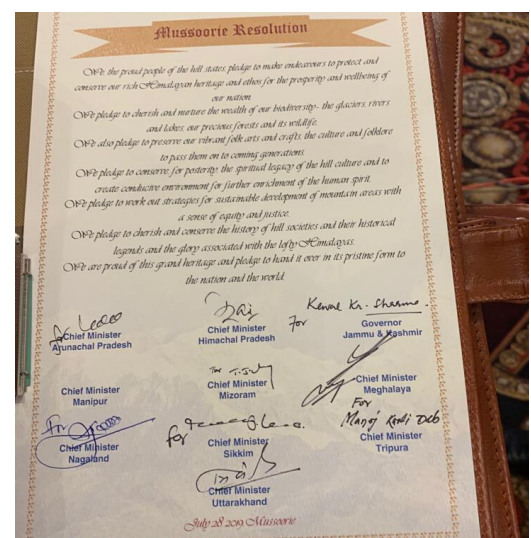 Mussoorie Resolution
We, the proud people of the hill states, pledge to make endeavours to protect and
conserve our rich Himalayan heritage and ethos for the prosperity and wellbeing of
our nation.
We pledge to cherish and nurture the wealth of our biodiversity- the glaciers, rivers
and lakes, our precious forests and its wildlife.
We also pledge to preserve our vibrant folk arts and crafts, the culture and folklore
to pass them on to coming generations.
We pledge to conserve, for posterity, the spiritual legacy of the hill culture and to
create conducive environment for further enrichment of the human spirit.
We pledge to work out strategies for sustainable development of mountain areas with
a sense of equity and justice.
We pledge to cherish and conserve the history of hill societies and their historical
legends and the glory associated with the lofty Himalayas.
We are proud of this grand heritage and pledge to hand it over in its pristine form to
the nation and the world.
for
Chief Minister
Arunachal Pradesh
Chief Minister
Himachal Pradesh
for
Governor
Jammu & Kashmir
Chief Minister
Manipur
Chief Minister
Mizoram
Chief Minister
Meghalaya
For
Chief Minister
Nagaland
for
Chief Minister
Sikkim
For
Chief Minister
Tripura
Chief Minister
Uttarakhand
July 28 2019, Mussoorie